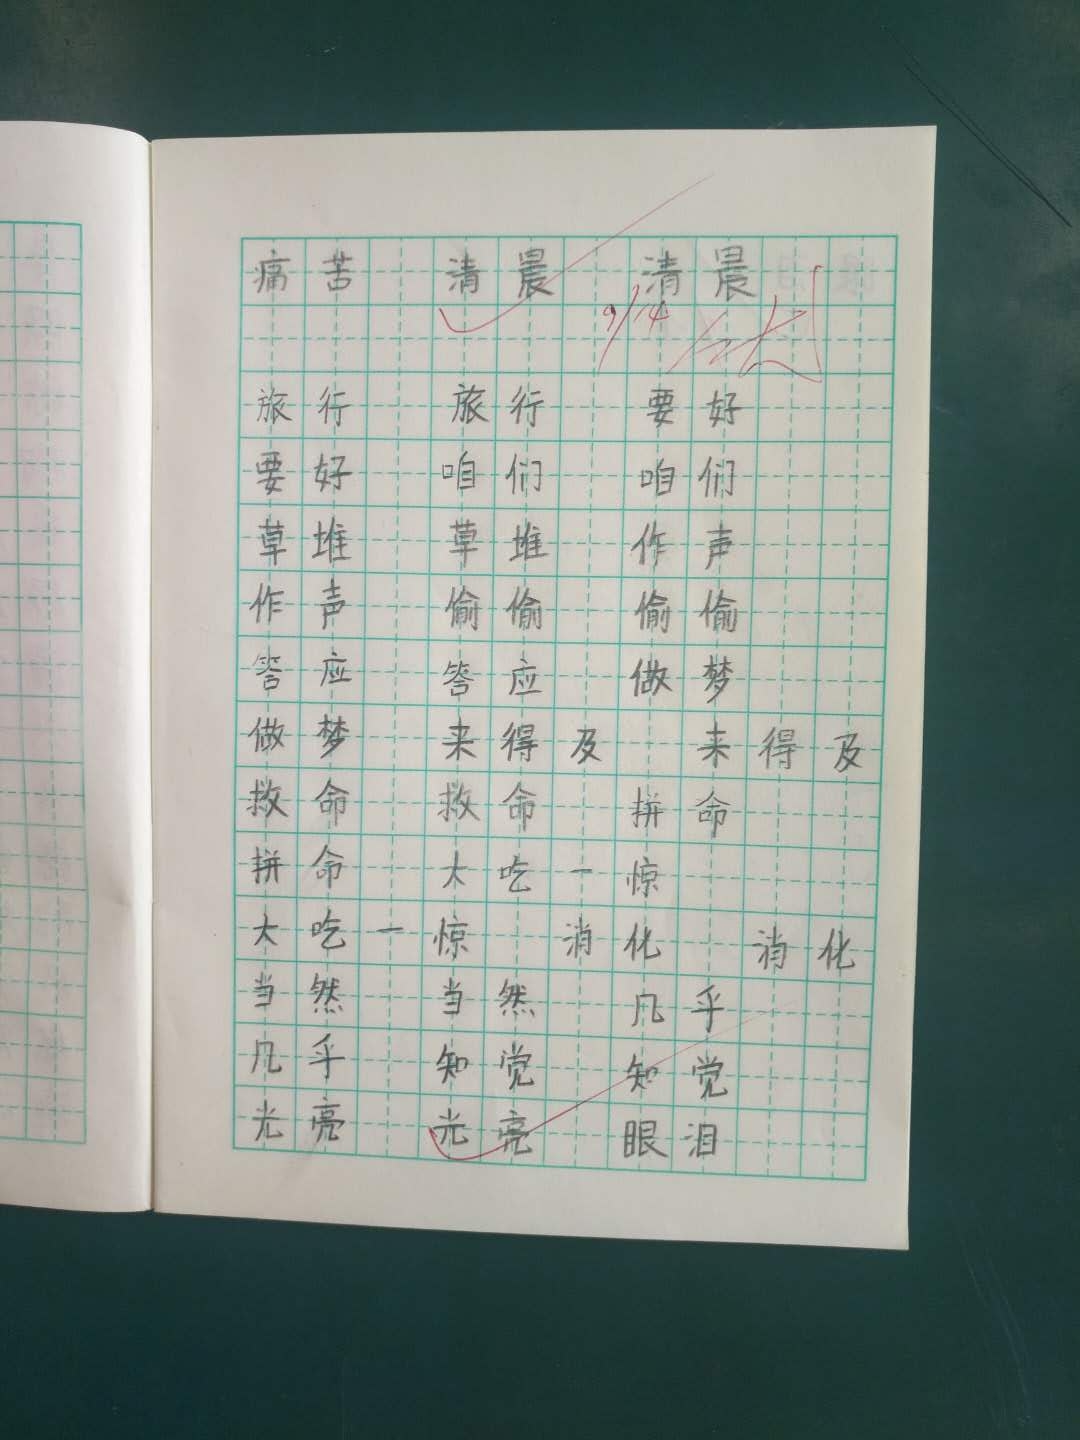 痛苦 清晨 清晨
9/14
旅行 旅行 要好
要好 咱们 咱们
草堆 草堆 作声
作声 偷偷 偷偷
答应 答应 做梦
做梦 来得及 来得及
救命 救命 拼命
拼命 大吃一惊
大吃一惊 消化 消化
当然 当然 几乎
几乎 知觉 知觉
光亮 光亮 眼泪